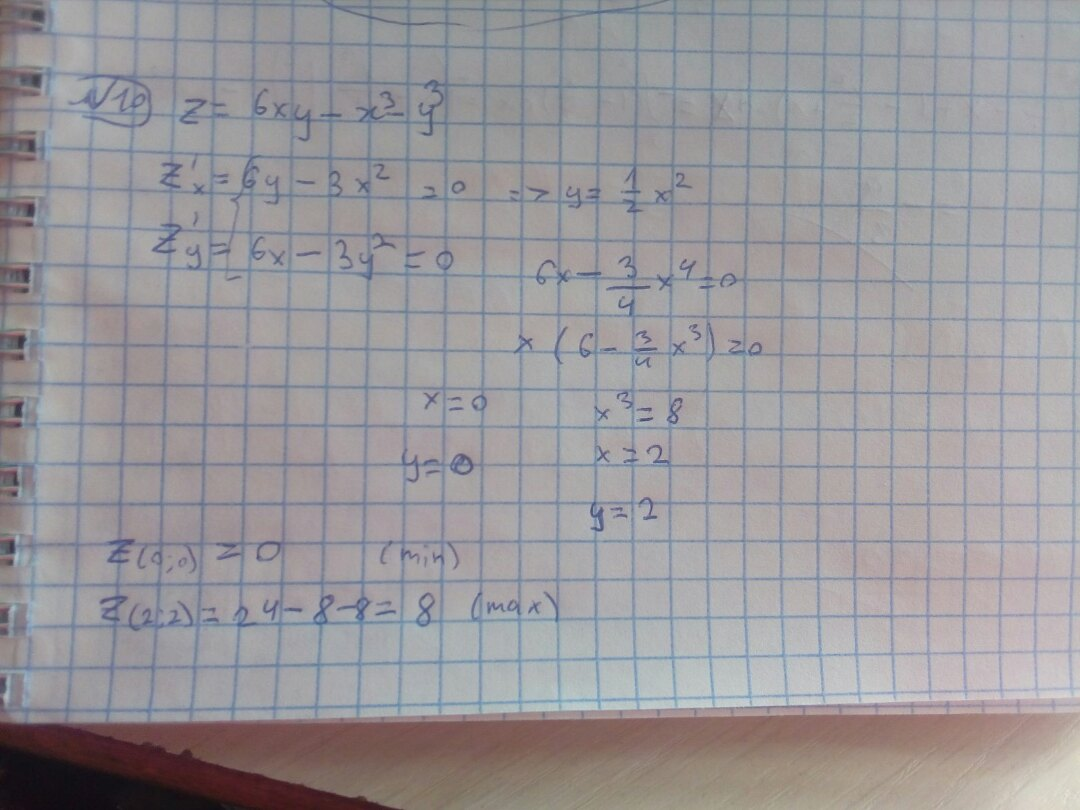 №10 z = 6xy - x³ - y³
z'x = 6y - 3x² = 0 => y = 1/2 x²
z'y = 6x - 3y² = 0
6x - 3/4 x⁴ = 0
x (6 - 3/4 x³) = 0
x = 0 x³ = 8
y = 0 x = 2
y = 2
z(0;0) = 0 (min)
z(2;2) = 24 - 8 - 8 = 8 (max)